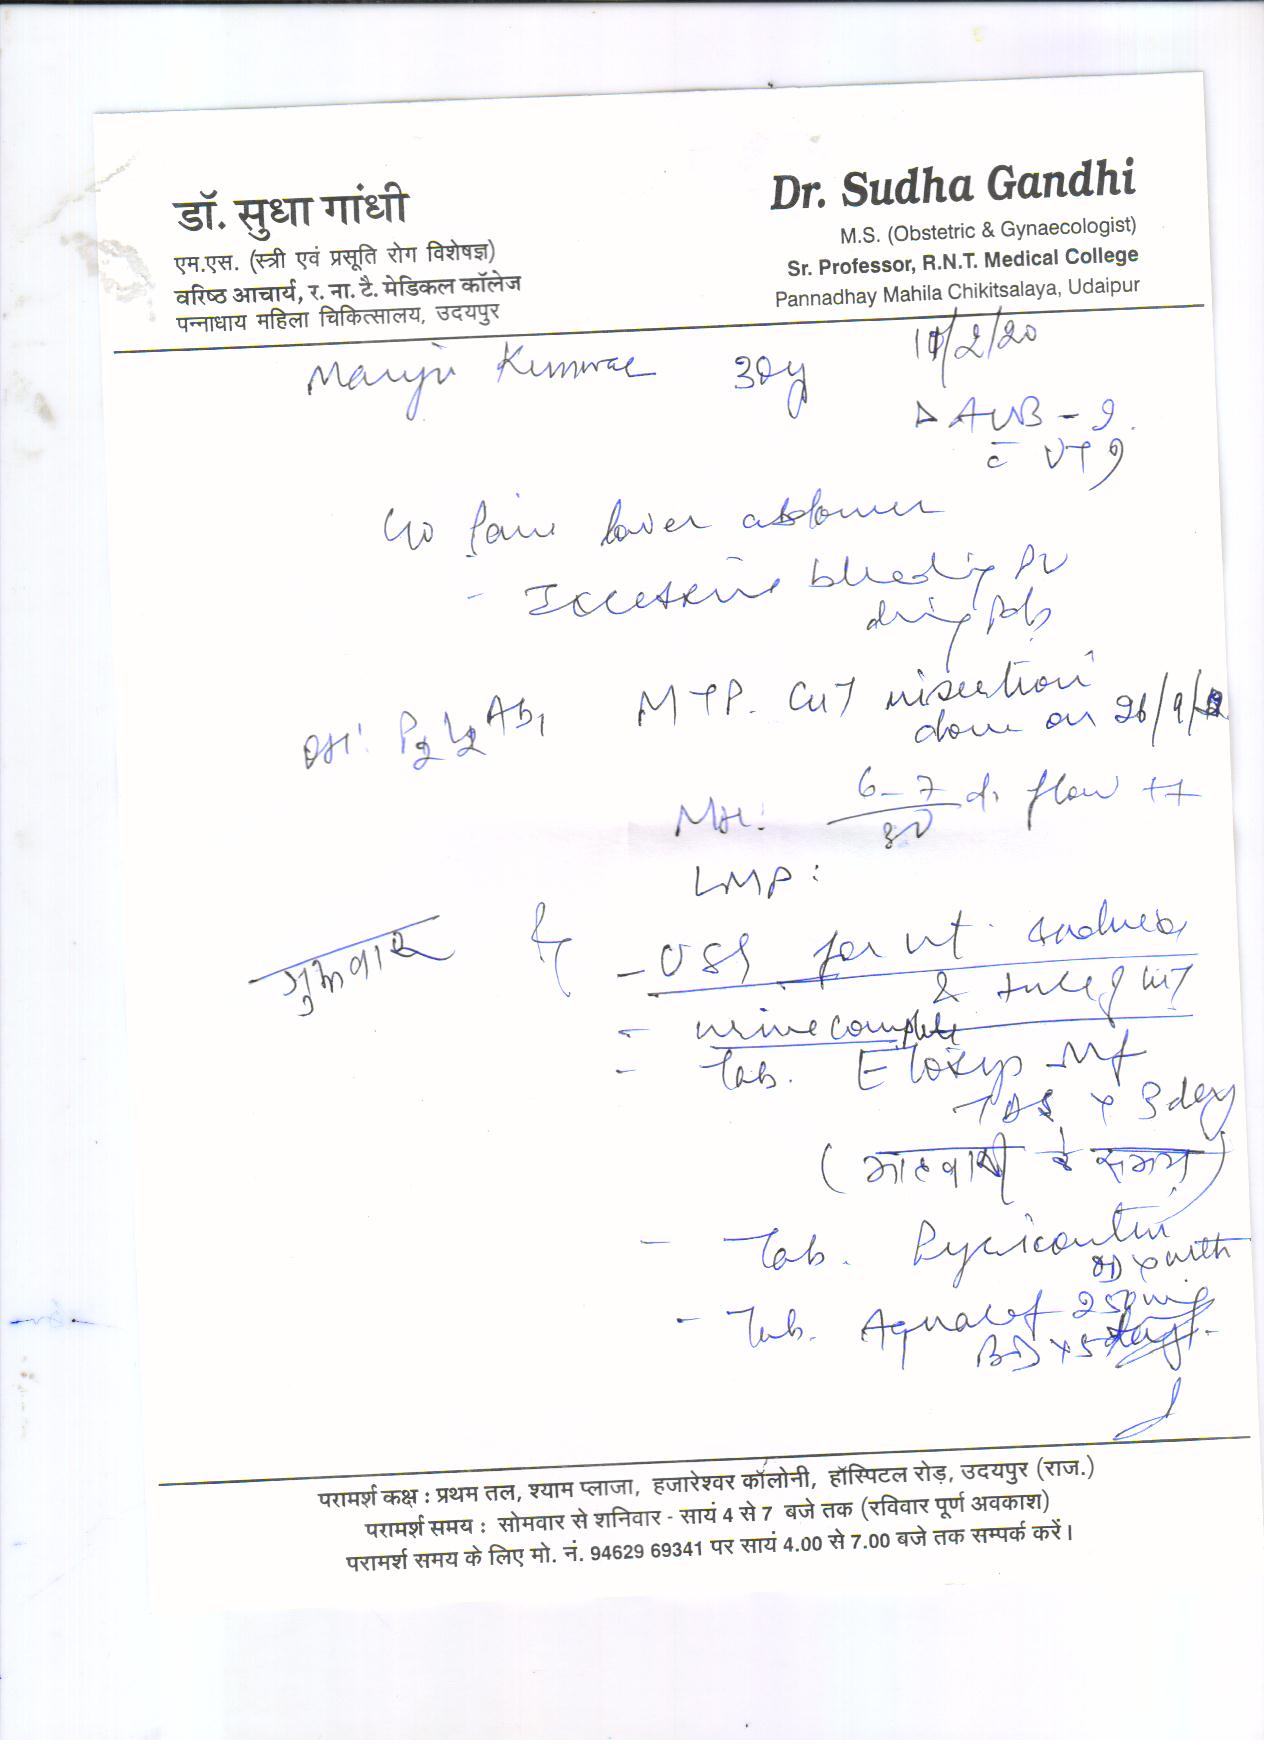 डॉ. सुधा गांधी
एम.एस. (स्त्री एवं प्रसूति रोग विशेषज्ञ)
वरिष्ठ आचार्य, र. ना. टै. मेडिकल कॉलेज
पन्नाधाय महिला चिकित्सालय, उदयपुर
Dr. Sudha Gandhi
M.S. (Obstetric & Gynaecologist)
Sr. Professor, R.N.T. Medical College
Pannadhay Mahila Chikitsalaya, Udaipur
30y
/2/20
AUB -
c̄ UT
c/o Pain lower abdomen
- Excessive bleeding PV
during
OH: P2 L2 Ab1 MTP. CuT insertion
done on 26/9/
MH: 6-7/30 d. flow ++
LMP:
शुक्रवार
- USG for ut.
& CuT
- urine complete
- Tab. Mf
TDS x 3 day
(माहवारी के समय)
- Tab.
OD x
- Tab. 250 mg
BD x 5 days
परामर्श कक्ष : प्रथम तल, श्याम प्लाजा, हजारेश्वर कॉलोनी, हॉस्पिटल रोड़, उदयपुर (राज.)
परामर्श समय : सोमवार से शनिवार - सायं 4 से 7 बजे तक (रविवार पूर्ण अवकाश)
परामर्श समय के लिए मो. नं. 94629 69341 पर सायं 4.00 से 7.00 बजे तक सम्पर्क करें।